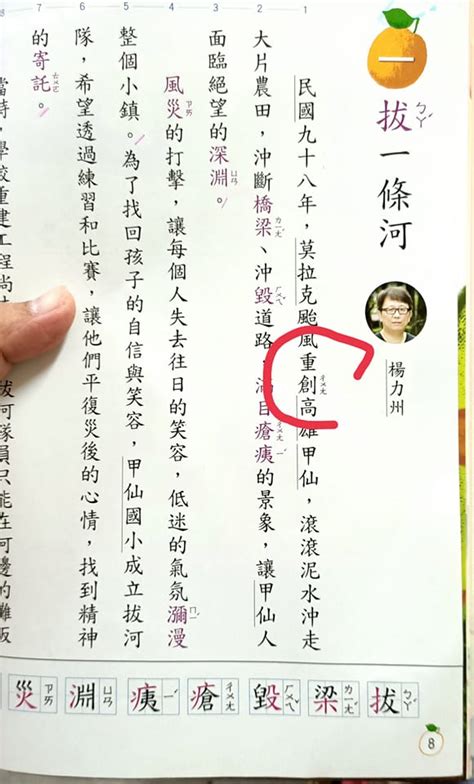 一
拔一條河
ㄅㄚˊ
楊力州
1 2 3 4 5 6 7
民國九十八年，莫拉克颱風重創高雄甲仙，滾滾泥水沖走
大片農田，沖斷橋梁、沖毀道路，滿目瘡痍的景象，讓甲仙人
面臨絕望的深淵。
風災的打擊，讓每個人失去往日的笑容，低迷的氣氛瀰漫
整個小鎮。為了找回孩子的自信與笑容，甲仙國小成立拔河
隊，希望透過練習和比賽，讓他們平復災後的心情，找到精神
的寄託。
當時，學校重建工程尚 拔河隊員只能在河邊的攤販
拔ㄅㄚˊ 梁ㄌㄧㄤˊ 毀ㄏㄨㄟˇ 瘡ㄔㄨㄤ 痍ㄧˊ 淵ㄩㄢ 災ㄗㄞ
8